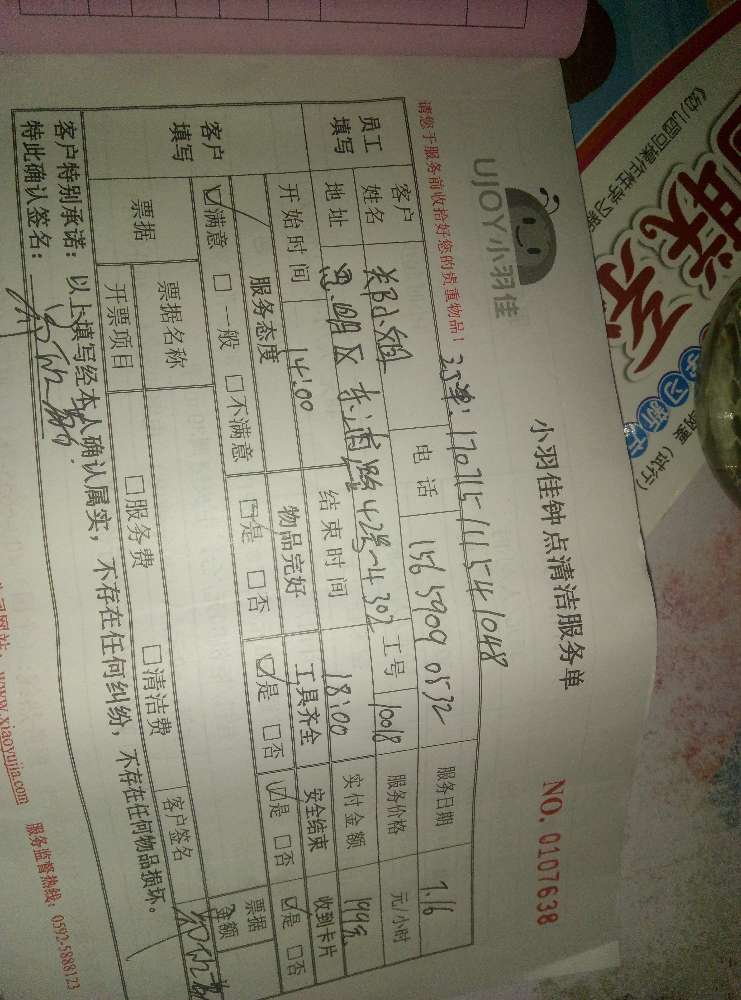 UJOY小羽佳
小羽佳钟点清洁服务单
NO. 0107638
请您于服务前收拾好您的贵重物品！
170715111541048
员工填写
客户姓名
电话 156 5909 0532
服务日期 7.16
地址 思明区
42号
302
工号 10018
服务价格 元/小时
开始时间 14:00
结束时间 18:00
实付金额
客户填写
服务态度 物品完好 工具齐全 安全结束 收到卡片
☑满意 □一般 □不满意 ☑是 □否 ☑是 □否 ☑是 □否 ☑是 □否
票据
票据名称
开票项目 □服务费 □清洁费
客户签名
票据金额
客户特别承诺：以上填写经本人确认属实，不存在任何纠纷，不存在任何物品损坏。
特此确认签名：
www.xiaoyujia.com 服务监督热线：0592-5888123
《幼儿园可操作性学习